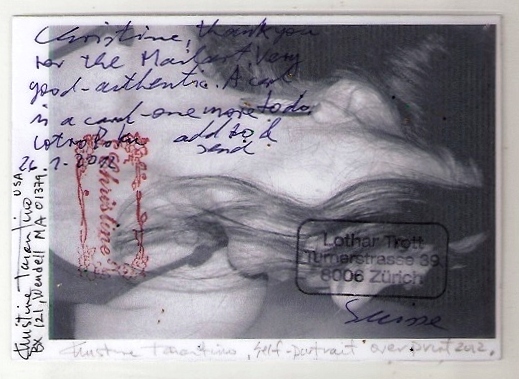 Christine, thank you
for the Mailart Very
good-authentic. A card
in a card-one more to do
add to &
send
26.1.2012
Christine
Lothar Trott
Turnerstrasse 39
8006 Zürich
Suisse
Christine Tarantino USA
BX 121, Wendell MA 01379
Christine Tarantino, Self-portrait overprint 2012.